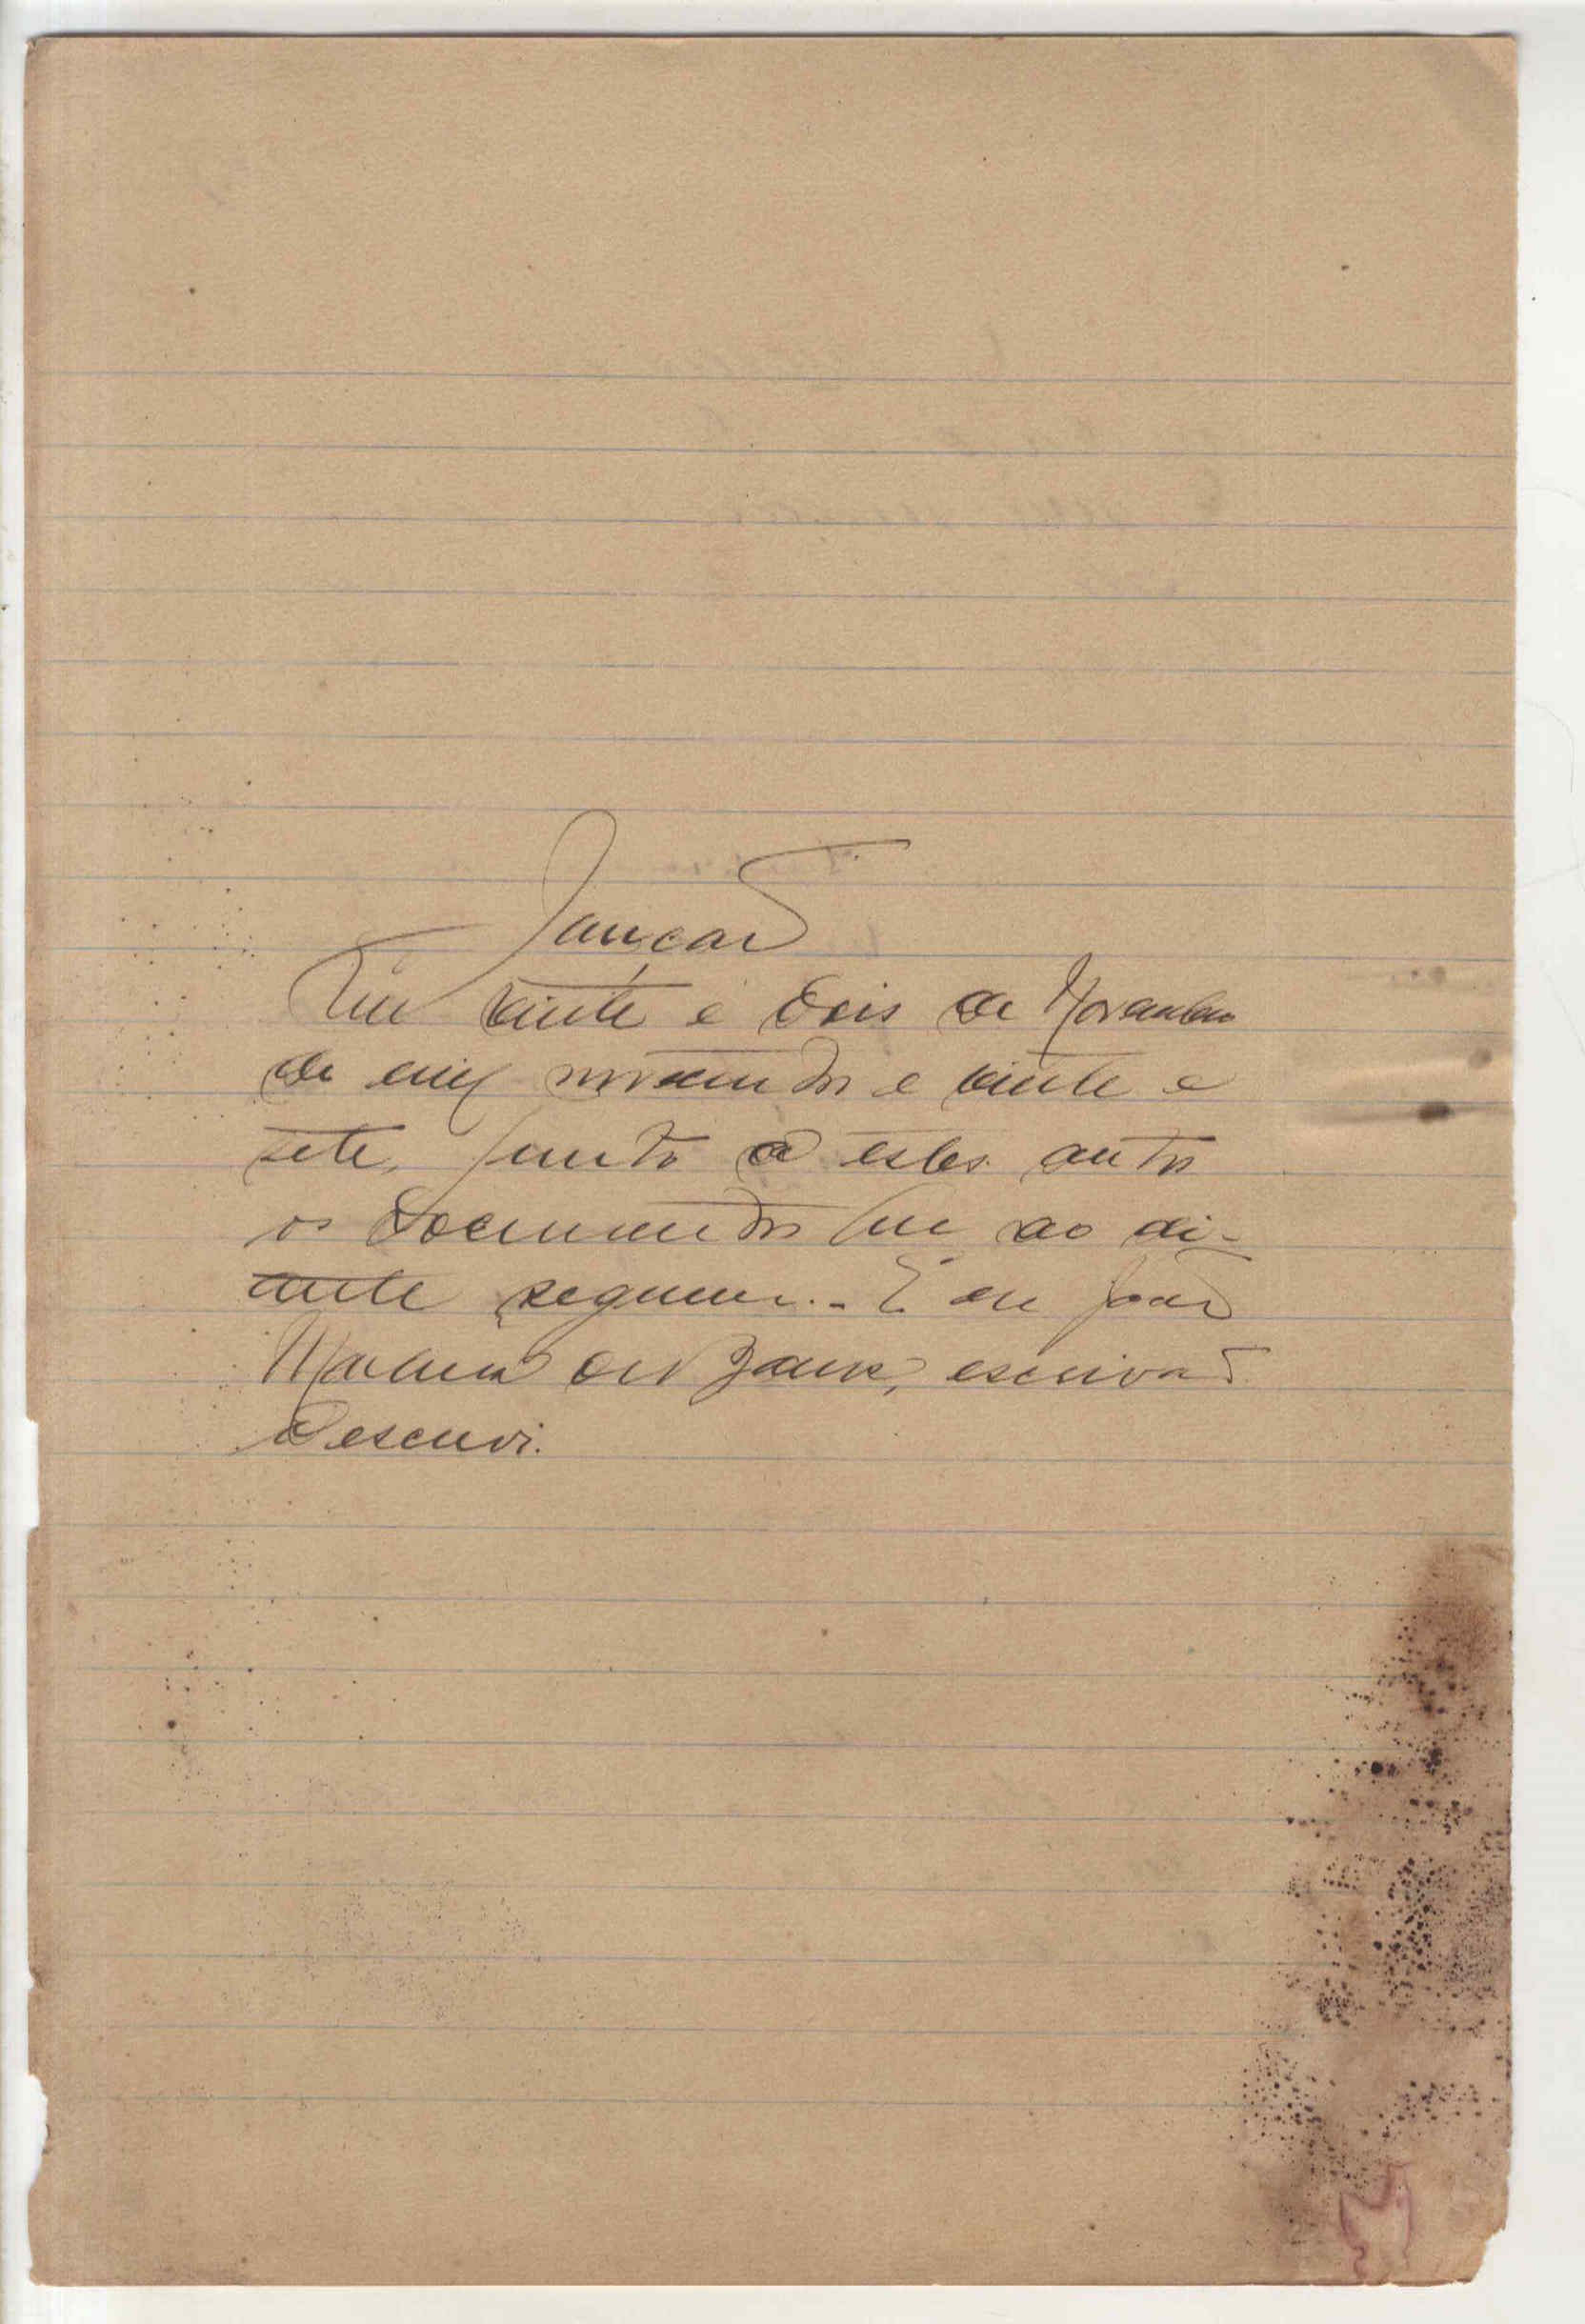 Junção
Em vinte e dois de Novembro
de mil novecentos e vinte e
sete, junto a estes autos
os documentos que ao di-
ante seguem. - E eu João
escrivão
o escrevi.